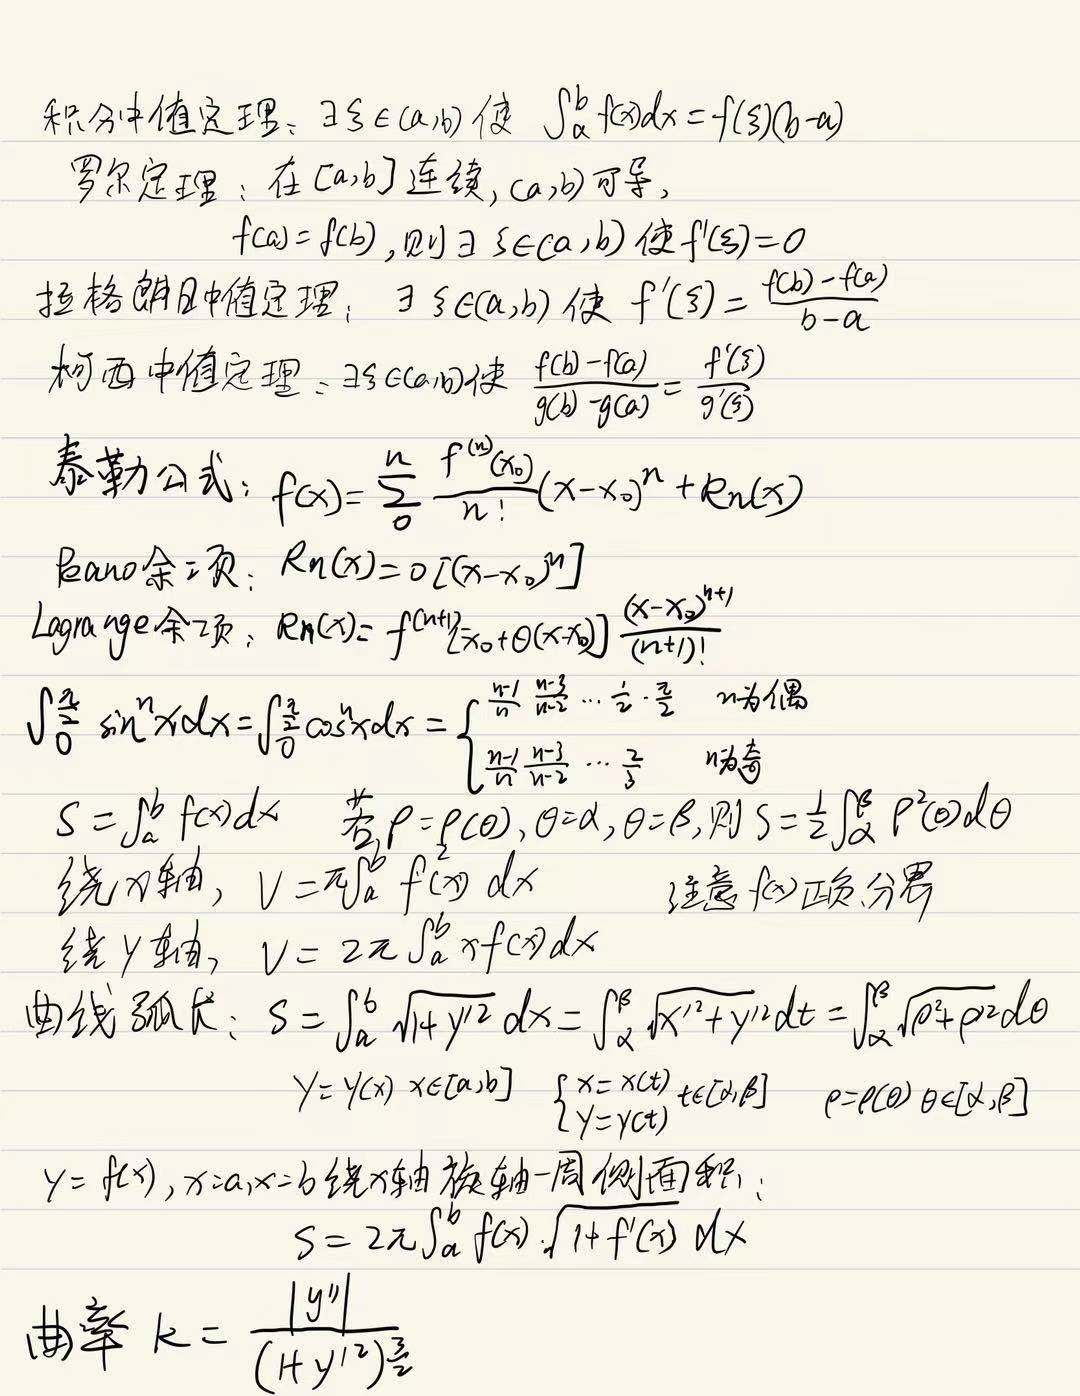 积分中值定理: ∃ξ∈(a,b) 使 ∫_a^b f(x)dx = f(ξ)(b-a)
罗尔定理: 在[a,b]连续, (a,b)可导,
f(a)=f(b), 则∃ ξ∈(a,b) 使 f'(ξ)=0
拉格朗日中值定理: ∃ ξ∈(a,b) 使 f'(ξ) = (f(b)-f(a))/(b-a)
柯西中值定理: ∃ξ∈(a,b)使 (f(b)-f(a))/(g(b)-g(a)) = f'(ξ)/g'(ξ)
泰勒公式: f(x) = Σ_0^n f^(n)(x₀)/n! (x-x₀)^n + Rn(x)
Peano余项: Rn(x) = o[(x-x₀)^n]
Lagrange余项: Rn(x) = f^(n+1)[x₀+θ(x-x₀)] (x-x₀)^(n+1)/(n+1)!
∫_0^(π/2) sin^n x dx = ∫_0^(π/2) cos^n x dx = { (n-1)/n (n-3)/(n-2) … 1/2 · π/2 n为偶
(n-1)/n (n-3)/(n-2) … 2/3 n为奇
S = ∫_a^b f(x)dx 若ρ=ρ(θ), θ=α, θ=β, 则 S = 1/2 ∫_α^β ρ²(θ)dθ
绕x轴, V = π∫_a^b f²(x) dx 注意f(x)正负分界
绕y轴, V = 2π ∫_a^b x f(x)dx
曲线弧长: S = ∫_a^b √(1+y'²) dx = ∫_α^β √(x'²+y'²) dt = ∫_α^β √(ρ²+ρ'²) dθ
y=y(x) x∈[a,b] { x=x(t) y=y(t) t∈[α,β] ρ=ρ(θ) θ∈[α,β]
y=f(x), x=a, x=b绕x轴旋轴一周侧面积:
S = 2π∫_a^b f(x)·√(1+f'(x)) dx
曲率 k = |y''|/(1+y'²)^(3/2)